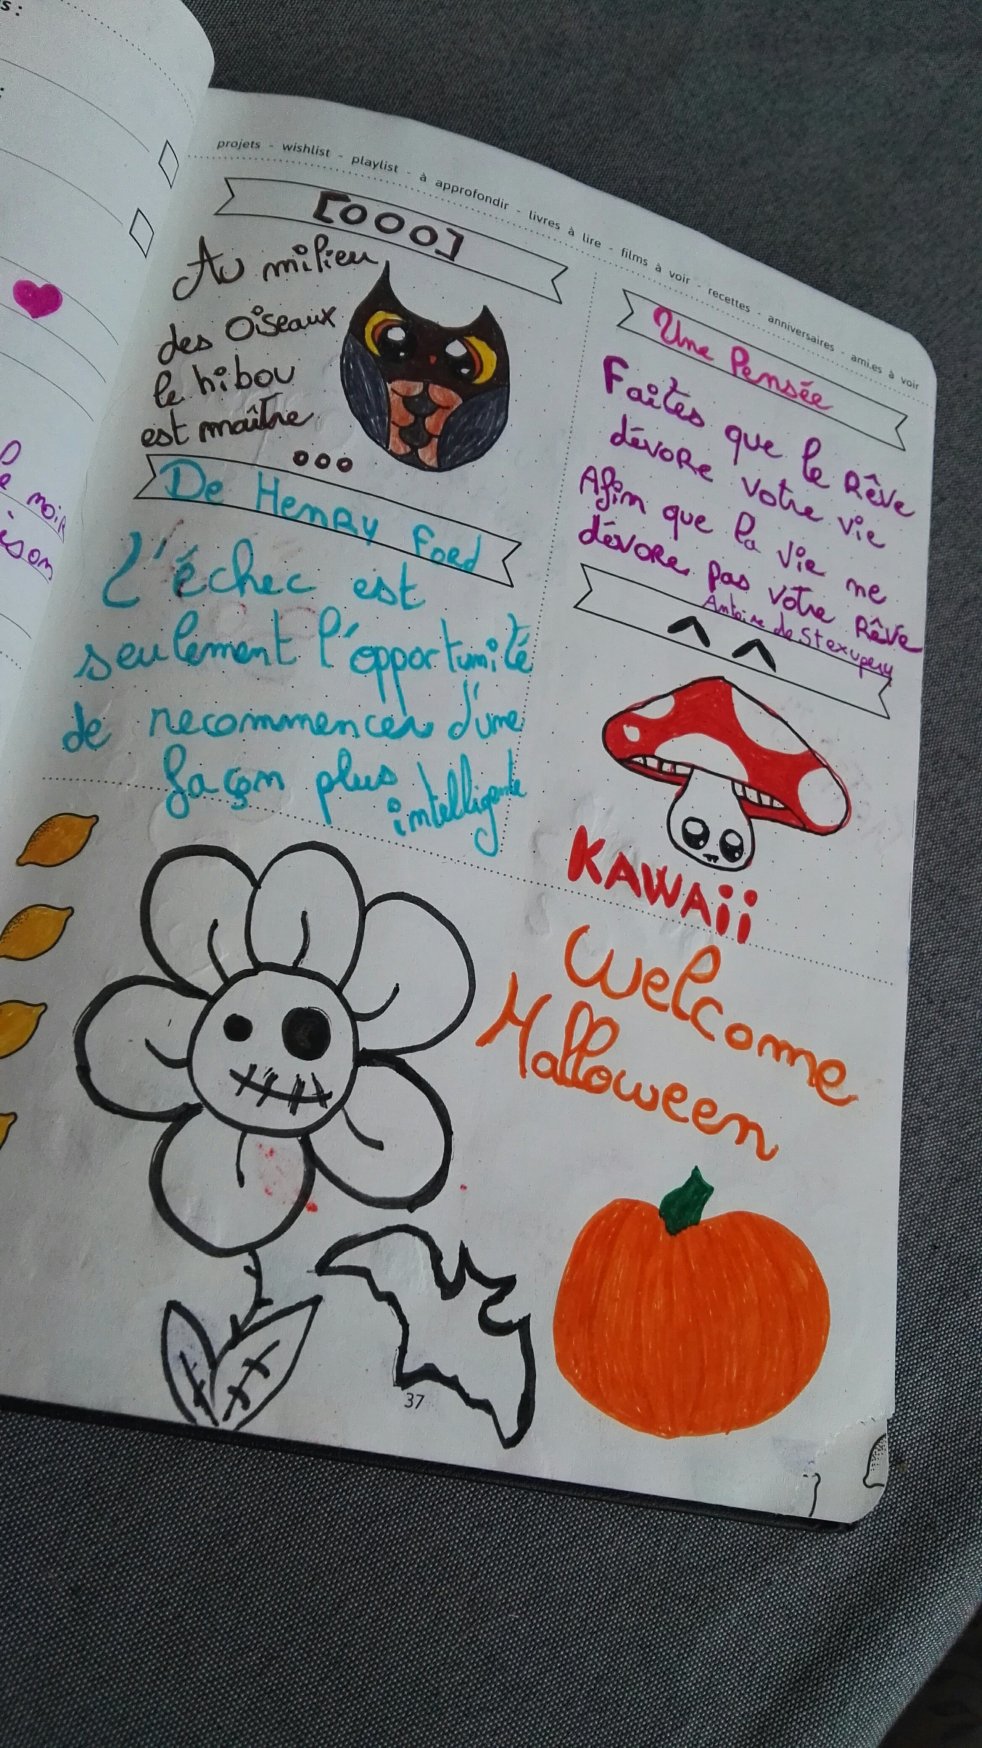 s :
:
projets - wishlist - playlist - à approfondir - livres à lire - films à voir - recettes - anniversaires - ami.es à voir
[OOO]
Au milieu
des Oiseaux
le hibou
est maître
ooo
De Henry Ford
L'échec est
seulement l'opportunité
de recommencer d'une
façon plus
intelligente
Une Pensée
Faites que le Rêve
dévore votre vie
Afin que la vie ne
dévore pas votre Rêve
Antoine de St exupery
^ ^
KAWAii
Welcome
Halloween
37